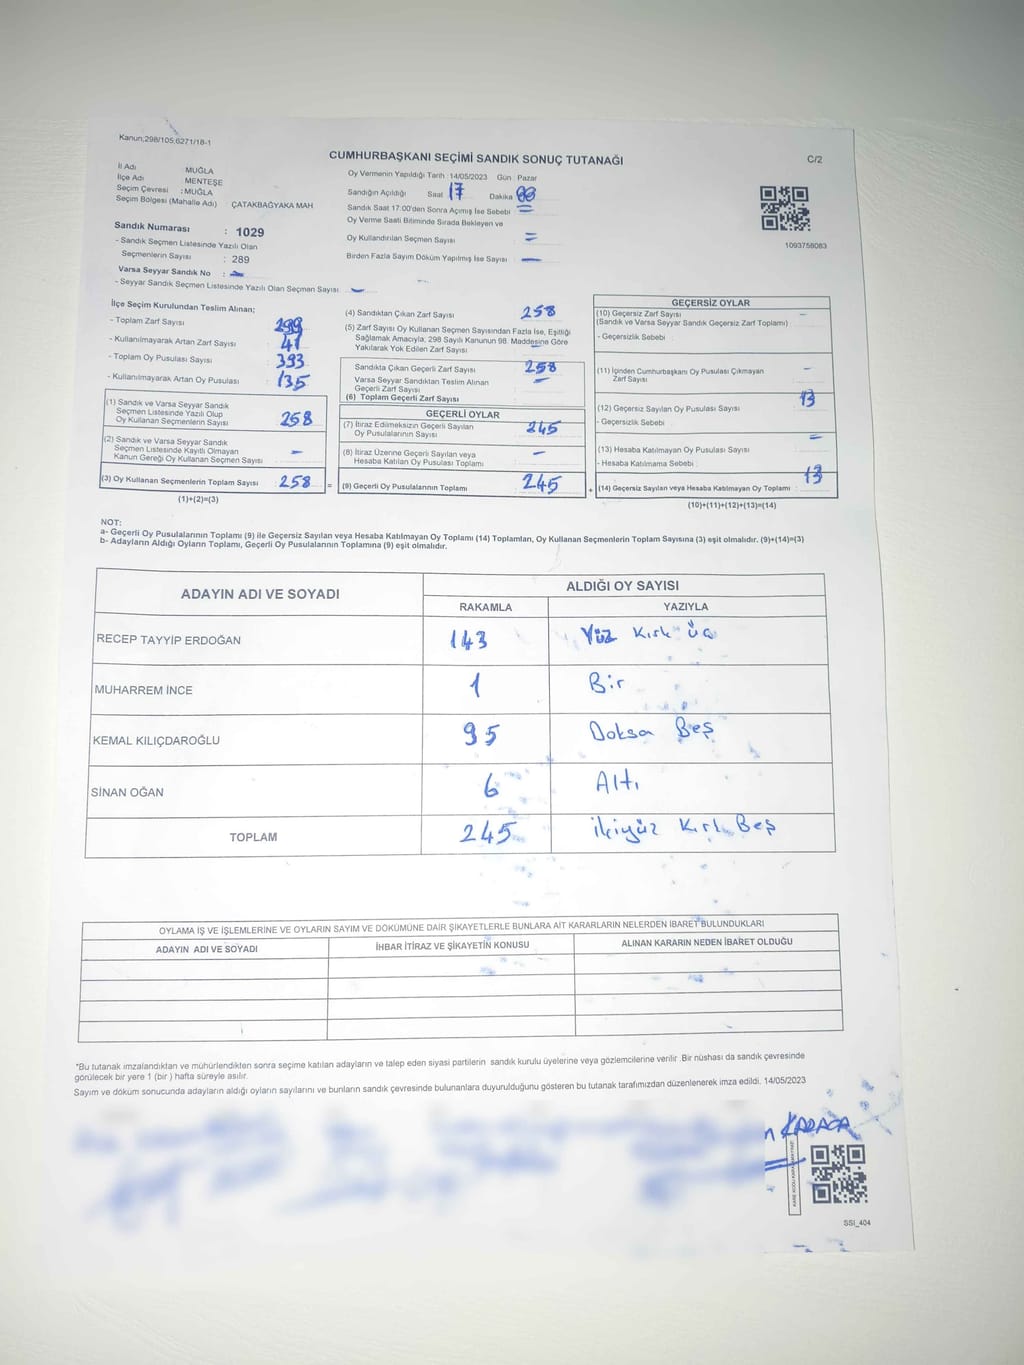 Kanun;298/105,6271/18-1
CUMHURBAŞKANI SEÇİMİ SANDIK SONUÇ TUTANAĞI
C/2
İl Adı MUĞLA
İlçe Adı MENTEŞE
Seçim Çevresi : MUĞLA
Seçim Bölgesi (Mahalle Adı) : ÇATAKBAĞYAKA MAH.
Sandık Numarası : 1029
- Sandık Seçmen Listesinde Yazılı Olan
Seçmenlerin Sayısı : 289
Varsa Seyyar Sandık No : -
- Seyyar Sandık Seçmen Listesinde Yazılı Olan Seçmen Sayısı : -
Oy Vermenin Yapıldığı Tarih : 14/05/2023 Gün : Pazar
Sandığın Açıldığı Saat 17 Dakika 00
Sandık Saat 17:00'den Sonra Açımış İse Sebebi =
Oy Verme Saati Bitiminde Sırada Bekleyen ve
Oy Kullandırılan Seçmen Sayısı =
Birden Fazla Sayım Döküm Yapılmış İse Sayısı : -
1093758083
İlçe Seçim Kurulundan Teslim Alınan;
- Toplam Zarf Sayısı : 299
- Kullanılmayarak Artan Zarf Sayısı : 41
- Toplam Oy Pusulası Sayısı : 393
- Kullanılmayarak Artan Oy Pusulası : 135
(1) Sandık ve Varsa Seyyar Sandık
Seçmen Listesinde Yazılı Olup
Oy Kullanan Seçmenlerin Sayısı : 258
(2) Sandık ve Varsa Seyyar Sandık
Seçmen Listesinde Kayıtlı Olmayan
Kanun Gereği Oy Kullanan Seçmen Sayısı : -
(3) Oy Kullanan Seçmenlerin Toplam Sayısı : 258
(1)+(2)=(3)
(4) Sandıktan Çıkan Zarf Sayısı : 258
(5) Zarf Sayısı Oy Kullanan Seçmen Sayısından Fazla İse, Eşitliği
Sağlamak Amacıyla; 298 Sayılı Kanunun 98. Maddesine Göre
Yakılarak Yok Edilen Zarf Sayısı : -
Sandıkta Çıkan Geçerli Zarf Sayısı : 258
Varsa Seyyar Sandıktan Teslim Alınan
Geçerli Zarf Sayısı : -
(6) Toplam Geçerli Zarf Sayısı
GEÇERLİ OYLAR
(7) İtiraz Edilmeksizin Geçerli Sayılan
Oy Pusulalarının Sayısı : 245
(8) İtiraz Üzerine Geçerli Sayılan veya
Hesaba Katılan Oy Pusulası Toplamı : -
= (9) Geçerli Oy Pusulalarının Toplamı : 245
GEÇERSİZ OYLAR
(10) Geçersiz Zarf Sayısı
(Sandık ve Varsa Seyyar Sandık Geçersiz Zarf Toplamı) : -
- Geçersizlik Sebebi
(11) İçinden Cumhurbaşkanı Oy Pusulası Çıkmayan
Zarf Sayısı : -
(12) Geçersiz Sayılan Oy Pusulası Sayısı : 13
- Geçersizlik Sebebi
(13) Hesaba Katılmayan Oy Pusulası Sayısı =
- Hesaba Katılmama Sebebi :
+ (14) Geçersiz Sayılan veya Hesaba Katılmayan Oy Toplamı : 13
(10)+(11)+(12)+(13)=(14)
NOT:
a- Geçerli Oy Pusulalarının Toplamı (9) ile Geçersiz Sayılan veya Hesaba Katılmayan Oy Toplamı (14) Toplamları, Oy Kullanan Seçmenlerin Toplam Sayısına (3) eşit olmalıdır. (9)+(14)=(3)
b- Adayların Aldığı Oyların Toplamı, Geçerli Oy Pusulalarının Toplamına (9) eşit olmalıdır.
ADAYIN ADI VE SOYADI
ALDIĞI OY SAYISI
RAKAMLA YAZIYLA
RECEP TAYYİP ERDOĞAN 143 Yüz Kırk üç
MUHARREM İNCE 1 Bir
KEMAL KILIÇDAROĞLU 95 Doksa Beş
SİNAN OĞAN 6 Altı
TOPLAM 245 ikiyüz Kırk Beş
OYLAMA İŞ VE İŞLEMLERİNE VE OYLARIN SAYIM VE DÖKÜMÜNE DAİR ŞİKAYETLERLE BUNLARA AİT KARARLARIN NELERDEN İBARET BULUNDUKLARI
ADAYIN ADI VE SOYADI İHBAR İTİRAZ VE ŞİKAYETİN KONUSU ALINAN KARARIN NEDEN İBARET OLDUĞU
*Bu tutanak imzalandıktan ve mühürlendikten sonra seçime katılan adayların ve talep eden siyasi partilerin sandık kurulu üyelerine veya gözlemcilerine verilir. Bir nüshası da sandık çevresinde
görülecek bir yere 1 (bir ) hafta süreyle asılır.
Sayım ve döküm sonucunda adayların aldığı oyların sayılarını ve bunların sandık çevresinde bulunanlara duyurulduğunu gösteren bu tutanak tarafımızdan düzenlenerek imza edildi. 14/05/2023
KARACA
SSI_404